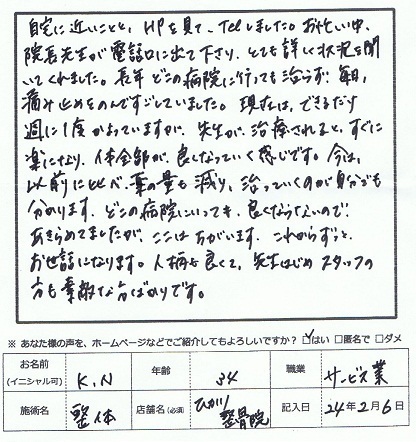 自宅に近いことと、HPを見て、Telしました。お忙しい中、
院長先生が電話口に出て下さり、とても詳しく状況を聞
いてくれました。長年どこの病院に行っても治らず、毎日、
痛み止めをのんですごしていました。現在は、できるだけ
週に1度かよっていますが、先生が、治療されると、すぐに
楽になり、体全部が、良くなっていく感じです。今は、
以前に比べ、薬の量も減り、治っていくのが自分でも
分かります。どこの病院にいっても、良くならないので
あきらめてましたが、ここはちがいます。これからずっと、
お世話になります。人柄も良くて、先生はじめスタッフの
方も素敵な方ばかりです。
※ あなた様の声を、ホームページなどでご紹介してもよろしいですか？ ☑はい □匿名で □ダメ
お名前(イニシャル可) K.N 年齢 34 職業 サービス業
施術名 整体 店舗名(必須) ひかり整骨院 記入日 24年2月6日